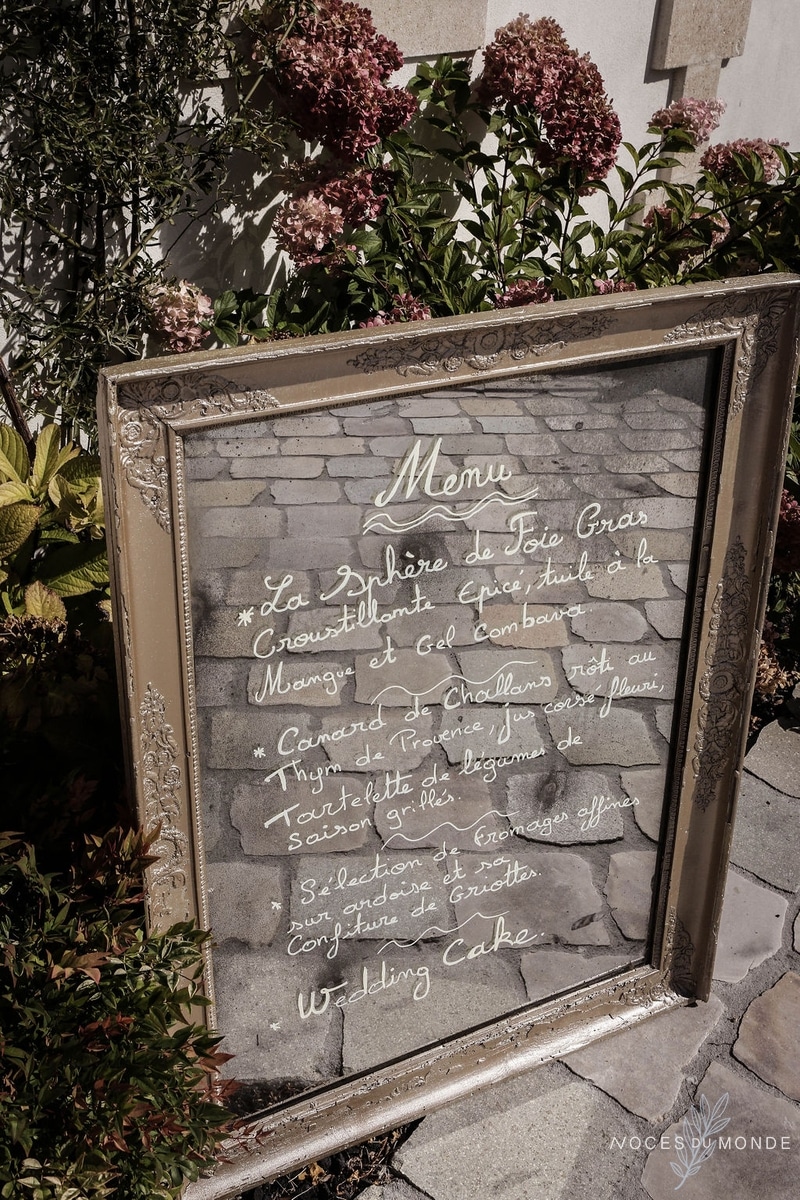 Menu
* La Sphère de Foie Gras
Croustillante Epicé, tuile à la
Mangue et Gel Combava.
* Canard de Challans rôti au
Thym de Provence, jus corsé fleuri,
Tartelette de légumes de
saison grillés.
* Sélection de Fromages affinés
sur ardoise et sa
Confiture de Griottes.
* Wedding Cake.
NOCES DU MONDE